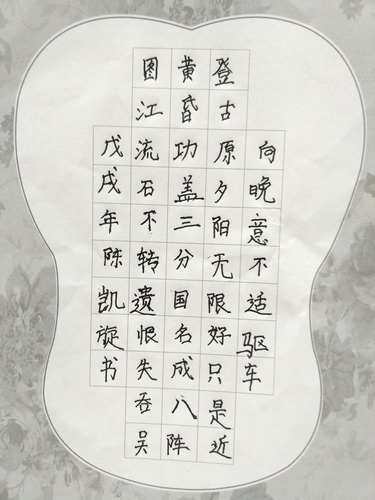 向晚意不适驱车
登古原夕阳无限好只是近
黄昏功盖三分国名成八阵
图江流石不转遗恨失吞吴
戊戌年陈凯旋书